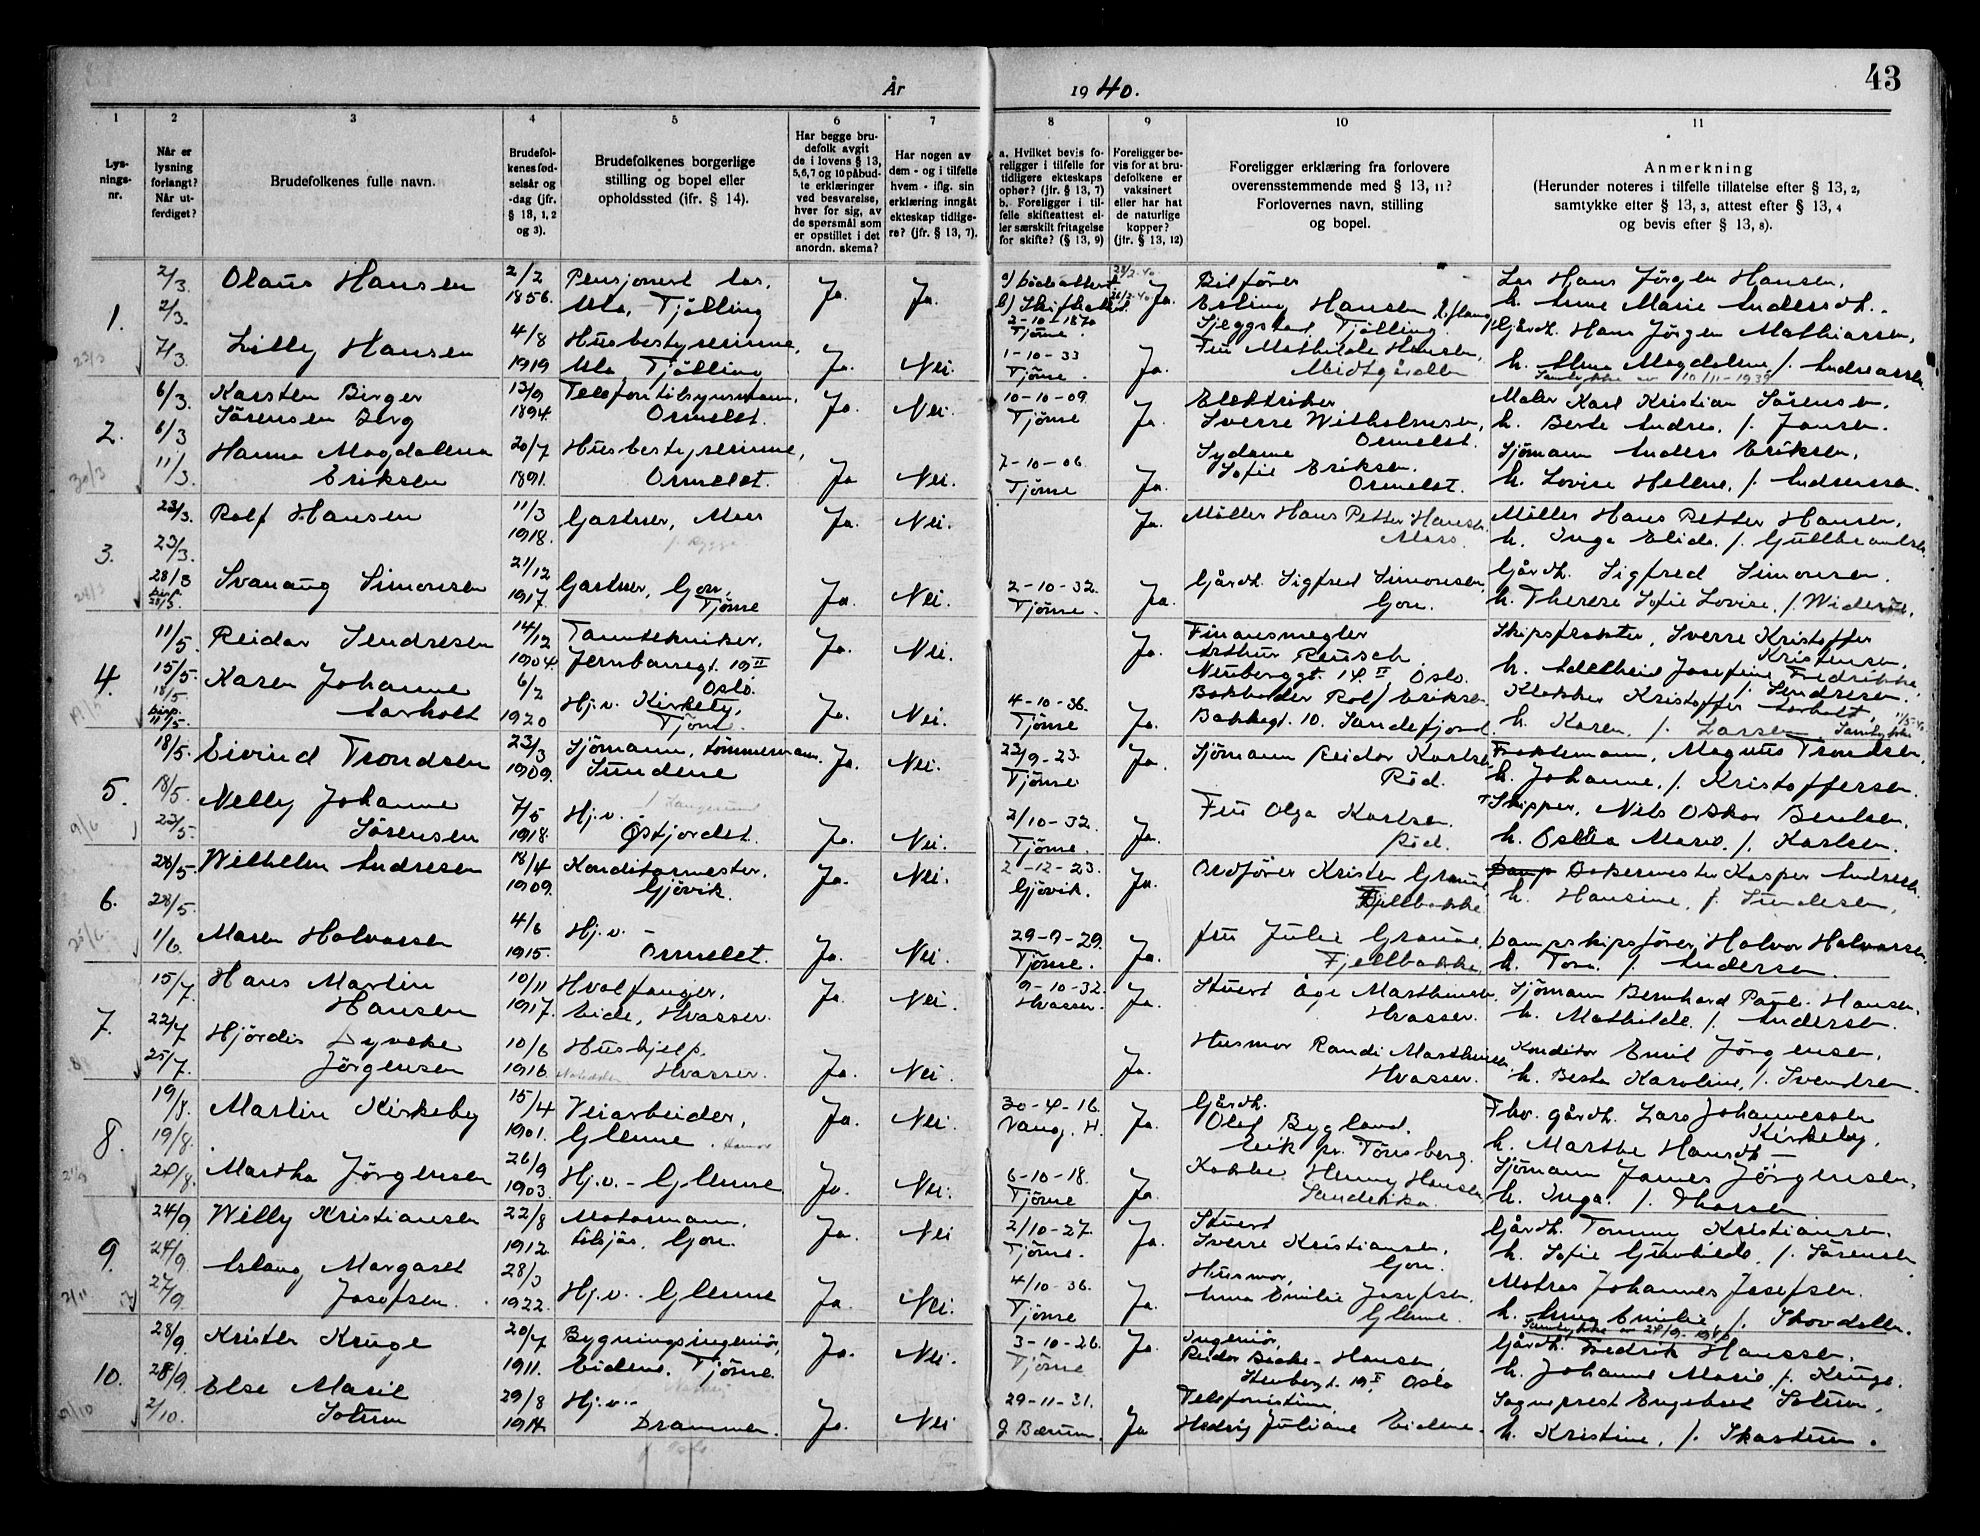 År 1940.
43
1 2 3 4 5 6 7 8 9 10 11
Lys-
nings-
nr.
Når er
lysning
forlangt?
Når ut-
ferdiget?
Brudefolkenes fulle navn.
Brudefol-
kenes fød-
selsår og
-dag (jfr.
§ 13, 1, 2
og 3).
Brudefolkenes borgerlige
stilling og bopel eller
opholdssted (jfr. § 14).
Har begge bru-
defolk avgit
de i lovens § 13,
5,6,7 og 10 påbud-
te erklæringer
ved besvarelse,
hver for sig, av
de spørsmål som
er opstillet i det
anordn. skema?
Har nogen av
dem - og i tilfelle
hvem - iflg. sin
erklæring inngåt
ekteskap tidlige-
re? (jfr. § 13, 7).
a. Hvilket bevis fo-
religger i tilfelle for
tidligere ekteskaps
ophør? (jfr. § 13, 7)
b. Foreligger i til-
felle skifteattest el-
ler særskilt fritagelse
for skifte? (§ 13, 9)
Foreligger be-
vis for at bru-
defolkene er
vaksinert
eller har hat
de naturlige
kopper?
(jfr. § 13, 12)
Foreligger erklæring fra forlovere
overensstemmende med § 13, 11?
Forlovernes navn, stilling
og bopel.
Anmerkning
(Herunder noteres i tilfelle tillatelse efter § 13, 2,
samtykke efter § 13, 3, attest efter § 13, 4
og bevis efter § 13, 8).
1.
2/3.
2/3.
7/3.
Olaus Hansen
2/2
1856.
Pensjonert los,
Ula, Tjølling
Ja.
Ja.
a) Dødsattest
b) Skifteattest
2-10-1870
Tjøme.
Ja.
Bilfører
Erling Hansen
Tjølling.
Los Hans Jørgen Hansen,
h. Anne Marie Andersdtr.
Lilly Hansen
4/8
1919
Husbestyrerinne,
Ula, Tjølling
Ja.
Nei.
1-10-33
Tjøme.
Ja.
Fru Mathilde Hansen,
Midtgården
Gårdb. Hans Jørgen Mathiassen,
h. Anna Magdalene f. Andreassen
Samtykke av 10/11-1939
2.
6/3.
6/3
11/3.
Karsten Birger
Sørensen Berg
13/9
1894.
Telefontilsynsmann,
Ormelet.
Ja.
Nei.
10-10-09.
Tjøme
Ja.
Elektriker
Sverre Wilhelmsen,
Ormelet.
Maler Karl Kristian Sørensen,
h. Berte Andrea, f. Jansen.
Hanna Magdalena
Eriksen
20/7
1891.
Husbestyrerinne,
Ormelet.
Ja
Nei.
7-10-06.
Tjøme
Ja.
Sydame
Sofie Eriksen.
Ormelet.
Sjømann Anders Eriksen,
h. Lovise Helene, f. Andersen.
3.
23/3.
23/3.
28/3
Rolf Hansen
11/3
1918.
Gartner, Moss
Ja.
Nei.
Ja.
Møller Hans Petter Hansen
Moss.
Møller Hans Petter Hansen,
h. Inga Elida, f. Gullbrandsen
Svanaug Simonsen
21/12
1917.
Gartner, Gon,
Tjøme
Ja.
Nei.
2-10-32.
Tjøme.
Ja.
Gårdb. Sigfred Simonsen,
Gon.
Gårdb. Sigfred Simonsen.
h. Therese Sofie Lovise, f. Widerøe.
4.
11/5.
15/5.
18/5.
Reidar Sendresen
14/12
1904.
Tanntekniker,
Jernbanegt. 19 II
Oslo.
Ja.
Nei.
Ja.
Finansmegler
Arthur Reusch
Neuberggt. 14 II Oslo.
Skipsfrakter, Sverre Kristoffer
Kristensen,
h. Adelheid Josefine Fredrikke,
f. Sendresen.
Karen Johanne
Aarholt
6/2
1920
Hj.v. Kirkeby,
Tjøme.
Ja.
Nei.
4-10-36.
Tjøme
Ja.
Bokholder Rolf Eriksen
Bakkegt. 10. Sandefjord
Klokker Kristoffer Aarholt,
h. Karen, f. Larsen. Samtykke
5.
18/5.
18/5.
22/5.
Eivind Trondsen
23/3
1909.
Sjømann, tømmermann.
Sundene
Ja.
Nei.
23/9-23.
Tjøme
Ja.
Sjømann Reidar Karlsen
Rød.
Fraktemann, Magnus Trondsen,
h. Johanne, f. Kristoffersen.
Nelly Johanne
Sørensen
7/5
1918.
Hj.v.
Østjordet.
Ja.
Nei.
2/10-32.
Tjøme.
Ja.
Fru Olga Karlsen
Rød.
Skipper, Nils Oskar Berntsen,
h. Oslea Marie. f. Karlsen.
6.
28/5.
28/5.
1/6.
Wilhelm Andresen
18/4
1909.
Konditormester,
Gjøvik.
Ja.
Nei.
2-12-23.
Gjøvik.
Ja.
Ordfører Kristen Granaas
Fjellbakke
Bakermester Kasper Andresen
h. Hansine, f. Sundesen,
Maren Halvorsen
4/6
1915.
Hj.v. -
Ormelet.
Ja.
Nei.
29-9-29.
Tjøme.
Ja.
fru Julie Granaas
Fjellbakke
Dampskipsfører, Halvor Halvorsen
h. Tora. f. Andersen.
7.
15/7.
22/7
25/7.
Hans Martin
Hansen
10/11
1917.
Hvalfanger,
Eide, Hvasser.
Ja.
Nei.
9-10-32.
Hvasser.
Ja.
Stuert Åge Marthinsen.
Hvasser.
Sjømann Bernhard Paul. Hansen,
h. Mathilde. f. Andersen.
Hjørdis Dyveke
Jørgensen
10/6
1916
Hushjelp,
Hvasser.
Ja.
Nei.
Ja.
Husmor Randi Marthinsen
Hvasser.
Konditor Emil Jørgensen,
h. Berta Karoline, f. Svendsen.
8.
19/8.
19/8.
28/8.
Martin Kirkeby
15/4
1901.
Veiarbeider,
Glenne.
Ja.
Nei.
30-4-16.
Vang. H.
Ja.
Gårdb.
Olaf Bygland,
Eik pr. Tønsberg.
Fhv. gårdb. Lars Johannessen
Kirkeby,
h. Marthe Hansdtr.
Martha Jørgensen
26/9
1903.
Hj.v. - Glenne
Ja.
Nei.
6-10-18.
Tjøme
Ja.
Kokke Henny Hansen,
Sjømann James Jørgensen,
h. Inga. f. Thorsen.
9.
24/9.
24/9.
27/9.
Willy Kristiansen
22/8
1912.
Motormann,
tilsjøs, Gon.
Ja.
Nei
2/10-27.
Tjøme.
Ja.
Stuert
Sverre Kristiansen,
Gon.
Gårdb. Tommy Kristiansen.
h. Sofie Gunhilde, f. Sørensen
Aslaug Margaret
Josefsen.
28/3
1922.
Hj.v. - Glenne
Ja.
Nei.
4/10-36.
Tjøme
Ja.
Husmor,
Anna Emilie Josefsen.
Glenne.
Matros Johannes Josefsen.
h. Anna Emilie f. Skovdalen.
Samtykke av 24/9-1940
10.
28/9.
28/9.
2/10.
Krister Kruge
20/7
1911.
Bygningsingeniør,
Eidene, Tjøme.
Ja.
Nei.
3-10-26.
Tjøme
Ja.
Ingeniør,
Reidar Becke-Hansen,
Oslo
Gårdb. Fredrik Hanssen,
h. Johanne Marie, f. Kruge.
Else Marie
Solum
29/8
1914.
Hj.v. -
Drammen.
Ja.
Nei
29-11-31.
Bærum.
Ja
Telefonistinne,
Hedvig Juliane Eidene.
Sogneprest Engebret Solum,
h. Kristine, f. Skartum.